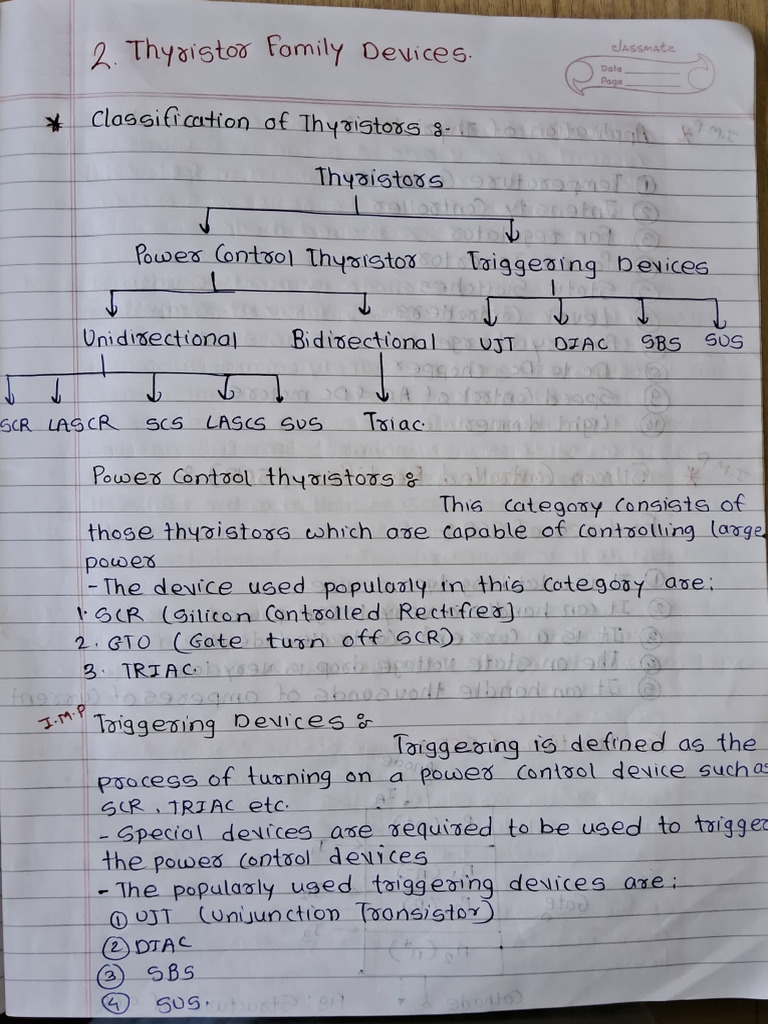 2. Thyristor Family Devices.
classmate
Date
Page
* Classification of Thyristors :-
Thyristors
Power Control Thyristor Triggering Devices
Unidirectional Bidirectional UJT DIAC SBS SUS
SCR LASCR SCS LASCS SUS Triac.
Power Control thyristors :
This category consists of
those thyristors which are capable of controlling large
power
- The device used popularly in this category are:
1. SCR (Silicon Controlled Rectifier]
2. GTO (Gate turn off SCR)
3. TRIAC.
I.M.P Triggering Devices :
Triggering is defined as the
process of turning on a power control device such as
SCR, TRIAC etc.
- Special devices are required to be used to trigger
the power control devices
- The popularly used triggering devices are:
① UJT (Unijunction Transistor)
② DIAC
③ SBS
④ SUS.